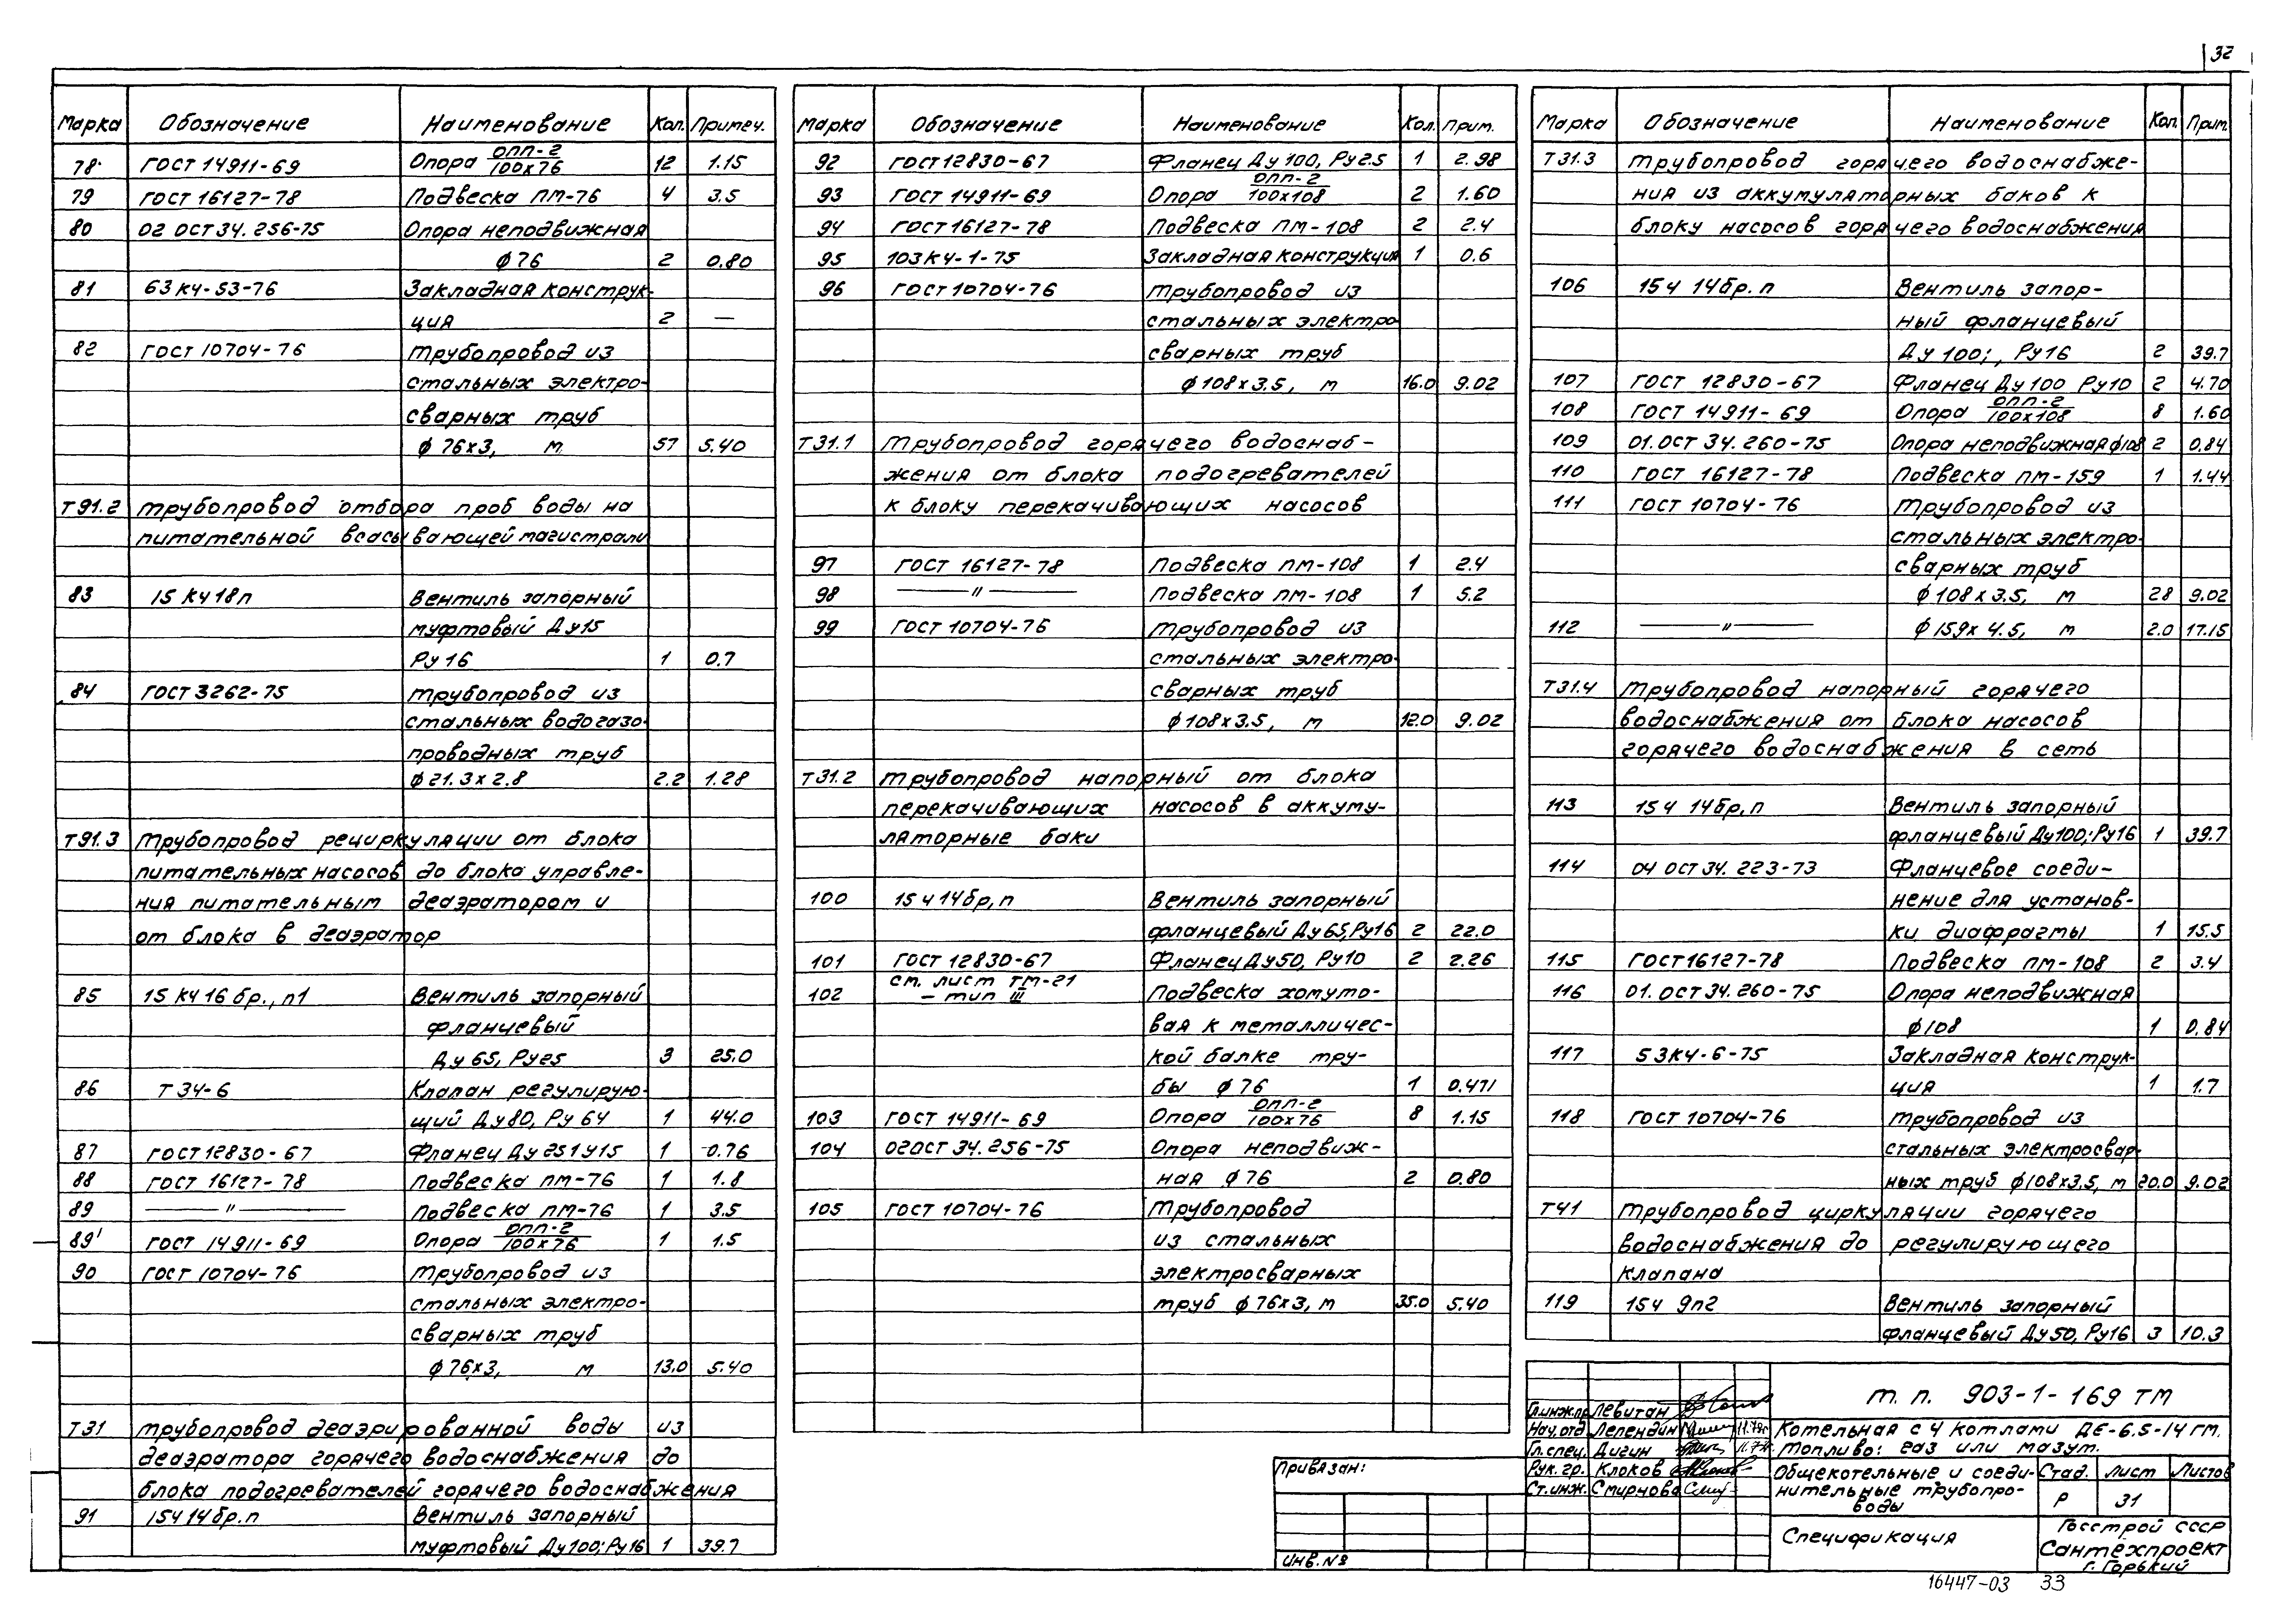 32
Марка Обозначение Наименование Кол. Примеч.
78 ГОСТ 14911-69 Опора опп-2/100х76 12 1.15
79 ГОСТ 16127-78 Подвеска ПМ-76 4 3.5
80 02 ОСТ 34. 256-75 Опора неподвижная
ф 76 2 0.80
81 63 КЧ-53-76 Закладная конструк-
ция 2 —
82 ГОСТ 10704-76 Трубопровод из
стальных электро-
сварных труб
ф 76х3, м 57 5.40
Т91.2 Трубопровод отбора проб воды на
питательной всасывающей магистрали
83 15 КЧ 18п Вентиль запорный
муфтовый Ду15
Ру 16 1 0.7
84 ГОСТ 3262-75 Трубопровод из
стальных водогазо-
проводных труб
ф 21.3 х 2.8 2.2 1.28
Т91.3 Трубопровод рециркуляции от блока
питательных насосов до блока управле-
ния питательным деаэратором и
от блока в деаэратор
85 15 КЧ 16 бр., п1 Вентиль запорный
фланцевый
Ду 65, Ру25 3 25.0
86 Т 34-6 Клапан регулирую-
щий Ду80, Ру 64 1 44.0
87 ГОСТ 12830-67 Фланец Ду 251У15 1 0.76
88 ГОСТ 16127-78 Подвеска ПМ-76 1 1.8
89 — " — Подвеска ПМ-76 1 3.5
89' ГОСТ 14911-69 Опора опп-2/100х76 1 1.5
90 ГОСТ 10704-76 Трубопровод из
стальных электро-
сварных труб
ф 76х3, м 13.0 5.40
Т31 Трубопровод деаэрированной воды из
деаэратора горячего водоснабжения до
блока подогревателей горячего водоснабжения
91 15Ч 14 бр. п Вентиль запорный
муфтовый Ду100; Ру16 1 39.7
Марка Обозначение Наименование Кол. Прим.
92 ГОСТ 12830-67 Фланец Ду 100, Ру2.5 1 2.98
93 ГОСТ 14911-69 Опора опп-2/100х108 2 1.60
94 ГОСТ 16127-78 Подвеска ПМ-108 2 2.4
95 103КЧ-1-75 Закладная конструкция 1 0.6
96 ГОСТ 10704-76 Трубопровод из
стальных электро-
сварных труб
ф 108х3.5, м 16.0 9.02
Т31.1 Трубопровод горячего водоснаб-
жения от блока подогревателей
к блоку перекачивающих насосов
97 ГОСТ 16127-78 Подвеска ПМ-108 1 2.4
98 — " — Подвеска ПМ-108 1 5.2
99 ГОСТ 10704-76 Трубопровод из
стальных электро-
сварных труб
ф108х3.5, м 12.0 9.02
Т31.2 Трубопровод напорный от блока
перекачивающих насосов в аккуму-
ляторные баки
100 15 Ч 14бр, п Вентиль запорный
фланцевый Ду 65, Ру16 2 22.0
101 ГОСТ 12830-67 Фланец Ду50, Ру10 2 2.26
102 см. лист ТМ-21 – тип III Подвеска хомуто-
вая к металличес-
кой балке тру-
бы ф 76 1 0.471
103 ГОСТ 14911-69 Опора опп-2/100х76 8 1.15
104 02ОСТ 34. 256-75 Опора неподвиж-
ная ф 76 2 0.80
105 ГОСТ 10704-76 Трубопровод
из стальных
электросварных
труб ф 76х3, м 35.0 5.40
Марка Обозначение Наименование Кол. Прим.
Т31.3 Трубопровод горячего водоснабже-
ния из аккумуляторных баков к
блоку насосов горячего водоснабжения
106 15Ч 14бр. п Вентиль запор-
ный фланцевый
Ду 100;, Ру16 2 39.7
107 ГОСТ 12830-67 Фланец Ду100 Ру10 2 4.70
108 ГОСТ 14911-69 Опора опп-2/100х108 8 1.60
109 01. ОСТ 34. 260-75 Опора неподвижная ф108 2 0.84
110 ГОСТ 16127-78 Подвеска ПМ-159 1 1.44
111 ГОСТ 10704-76 Трубопровод из
стальных электро-
сварных труб
ф 108 х 3.5, м 28 9.02
112 — " — ф 159х 4.5, м 2.0 17.15
Т31.4 Трубопровод напорный горячего
водоснабжения от блока насосов
горячего водоснабжения в сеть
113 15Ч 14бр, п Вентиль запорный
фланцевый Ду100; Ру16 1 39.7
114 04 ОСТ 34. 223-73 Фланцевое соеди-
нение для установ-
ки диафрагмы 1 15.5
115 ГОСТ 16127-78 Подвеска ПМ-108 2 3.4
116 01. ОСТ 34. 260-75 Опора неподвижная
ф108 1 0.84
117 53КЧ-6-75 Закладная конструк-
ция 1 1.7
118 ГОСТ 10704-76 Трубопровод из
стальных электросвар-
ных труб ф108х3.5, м 20.0 9.02
Т41 Трубопровод циркуляции горячего
водоснабжения до регулирующего
клапана
119 15Ч 9п2 Вентиль запорный
фланцевый Ду50, Ру16 3 10.3
Привязан:
Инв. №
Гл.инж.пр. Левитан
Нач. отд Лепендин
Гл. спец. Дигин
Рук. гр. Клоков
Ст. инж. Смирнова
т. п. 903-1-169 ТМ
Котельная с 4 котлами ДЕ-6.5-14 ГМ.
Топливо: газ или мазут.
Общекотельные и соеди-
нительные трубопро-
воды
Стад. Лист Листов
Р 31
Спецификация
Госстрой СССР
Сантехпроект
г. Горький
16447-03 33